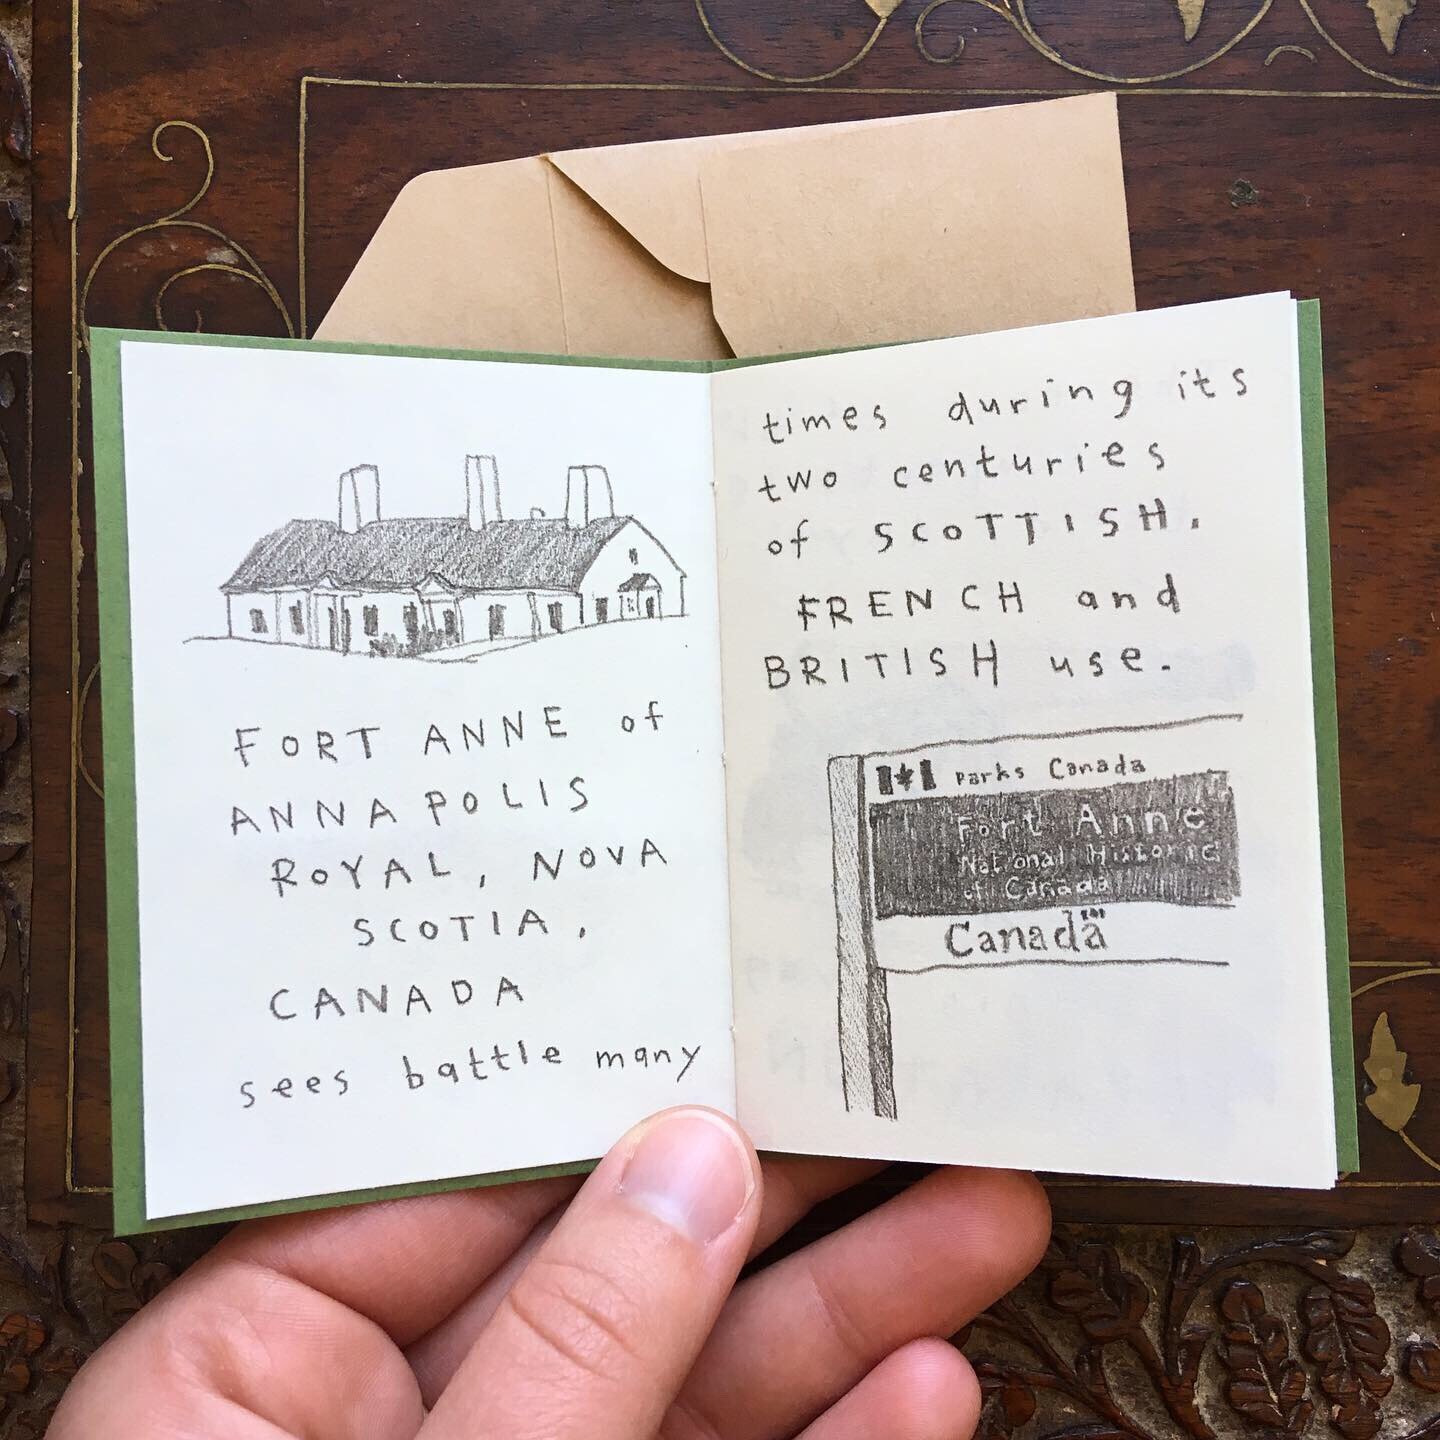 FORT ANNE of
ANNAPOLIS
ROYAL, NOVA
SCOTIA,
CANADA
sees battle many
times during its
two centuries
of SCOTTISH,
FRENCH and
BRITISH use.
Parks Canada
Fort Anne
National Historic
of Canada
Canada